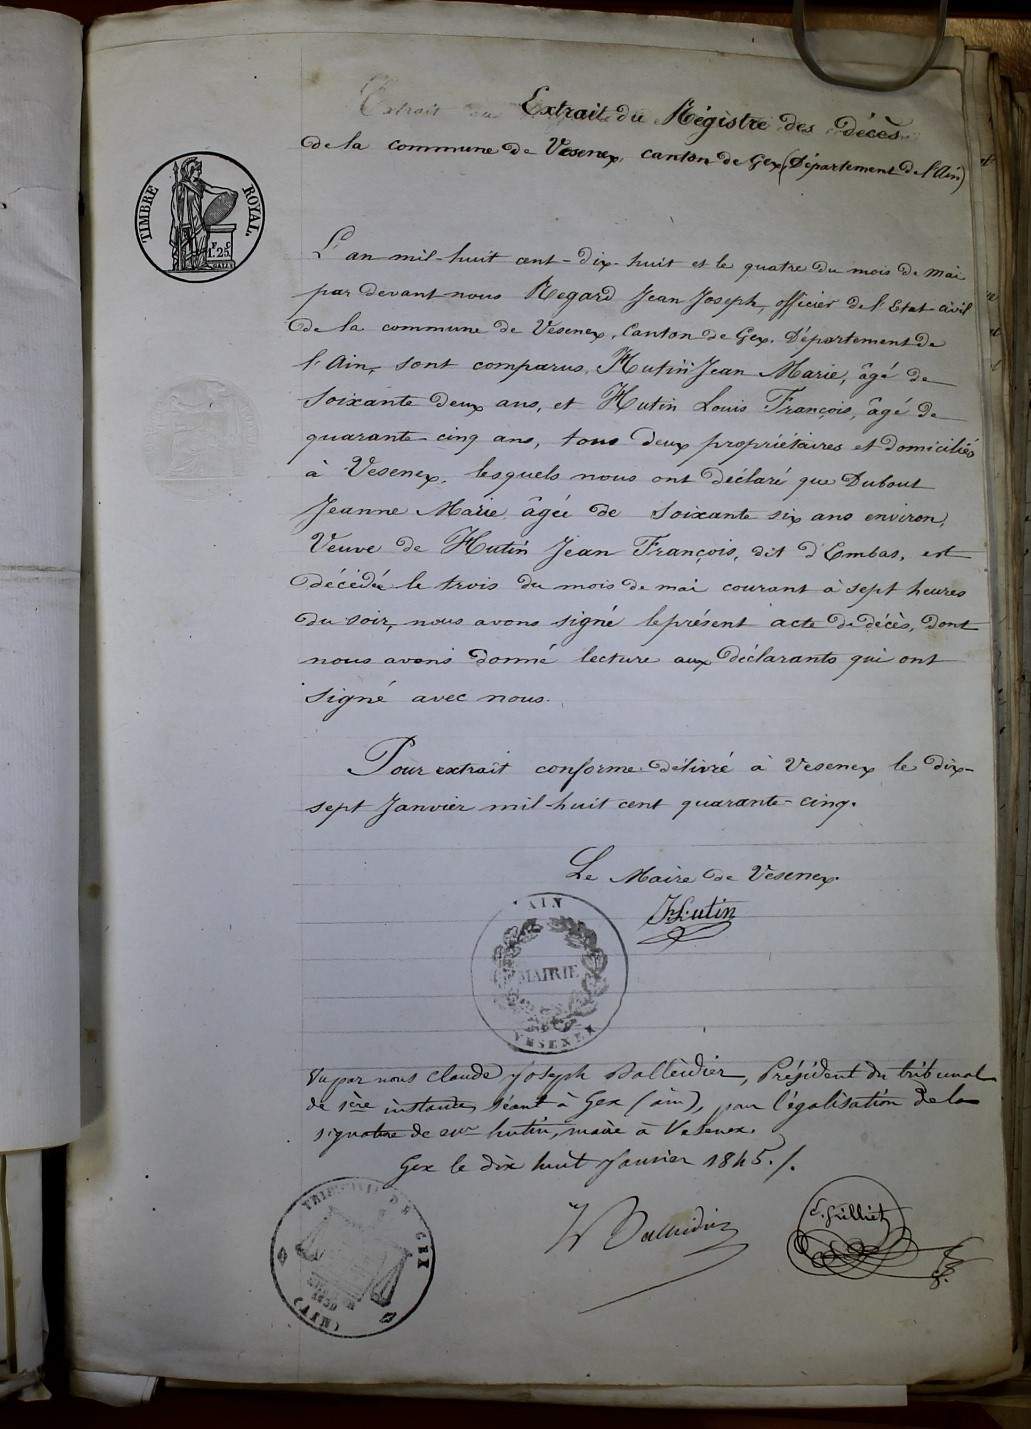 Extrait du Régistre des décès
de la commune de Vesenex, canton de Gex, (Département de l'Ain)
TIMBRE ROYAL.
F C
1. 25
L'an mil-huit cent-dix-huit et le quatre du mois de mai
par devant-nous Regard Jean Joseph, officier de l'Etat-civil
de la commune de Vesenex, Canton de Gex, Département de
l'Ain, sont comparus, Hutin Jean Marie, âgé de
soixante deux ans, et Hutin Louis François, âgé de
quarante cinq ans, tous deux propriétaires et domiciliés
à Vesenex, lesquels nous ont déclaré que Dubout
Jeanne Marie âgée de soixante six ans environ,
Veuve de Hutin Jean François, dit d'Embas, est
décédée le trois du mois de mai courant à sept heures
du soir, nous avons signé le présent acte de décès, dont
nous avons donné lecture aux déclarants qui ont
signé avec nous.
Pour extrait conforme délivré à Vesenex le dix-
sept Janvier mil-huit cent quarante-cinq.
Le Maire de Vesenex
Hutin
AIN
MAIRIE
VESENEX
Vu par nous Claude Joseph Balleidier, Président du tribunal
de 1ère instance, séant à Gex (ain), pour légalisation de la
signature de mr hutin, maire à Vesenex.
Gex le dix huit Janvier 1845./.
TRIBUNAL DE GEX
(AIN)
1830
Balleidier